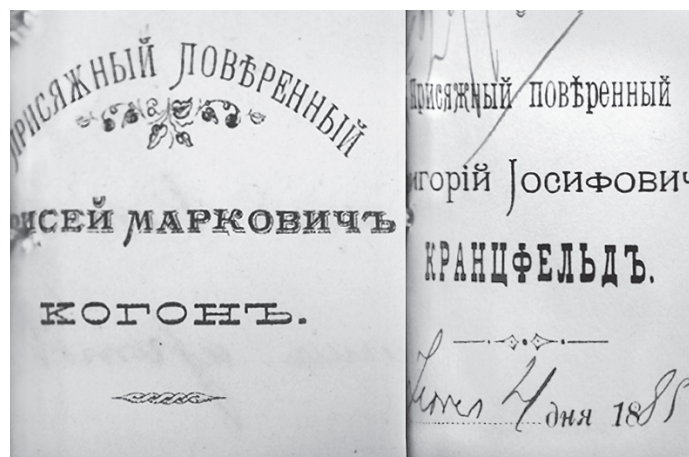 ПРИСЯЖНЫЙ ПОВѢРЕННЫЙ
ИСЕЙ МАРКОВИЧЪ
КОГОНЪ.
Присяжный повѣренный
игорій Іосифович
КРАНЦФЕЛЬДЪ.
4 дня 1885